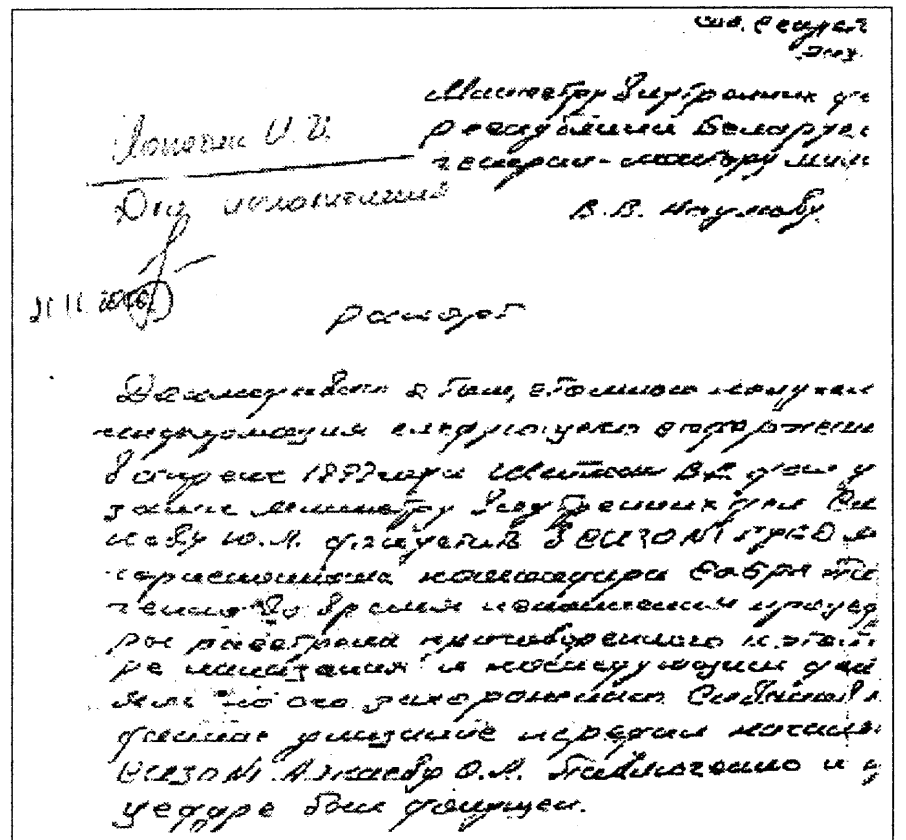 Сов. секрет
экз.
Министру внутренних де
республики Беларусь
генерал-майору мили
В.В. Наумову
Лопатик И.И.
Для исполнения
21.11.2000
рапорт
Докладываю о том, что мною получен
информация следующего содержани
в апреле 1999 года Шейман В.В. дал у
зание министру внутренних дел Си
кову Ю.Л. допустить в СИЗО №1 ГУВД
командира СОБРа
во время исполнения процед
ры расстрела приговоренного к этой
ре наказания и последующим дей
ям по его захоронению. Сиваков
данное указание передал начальн
СИЗО №1 Алкаеву О.Л. Павличенко и
цедуре был допущен.